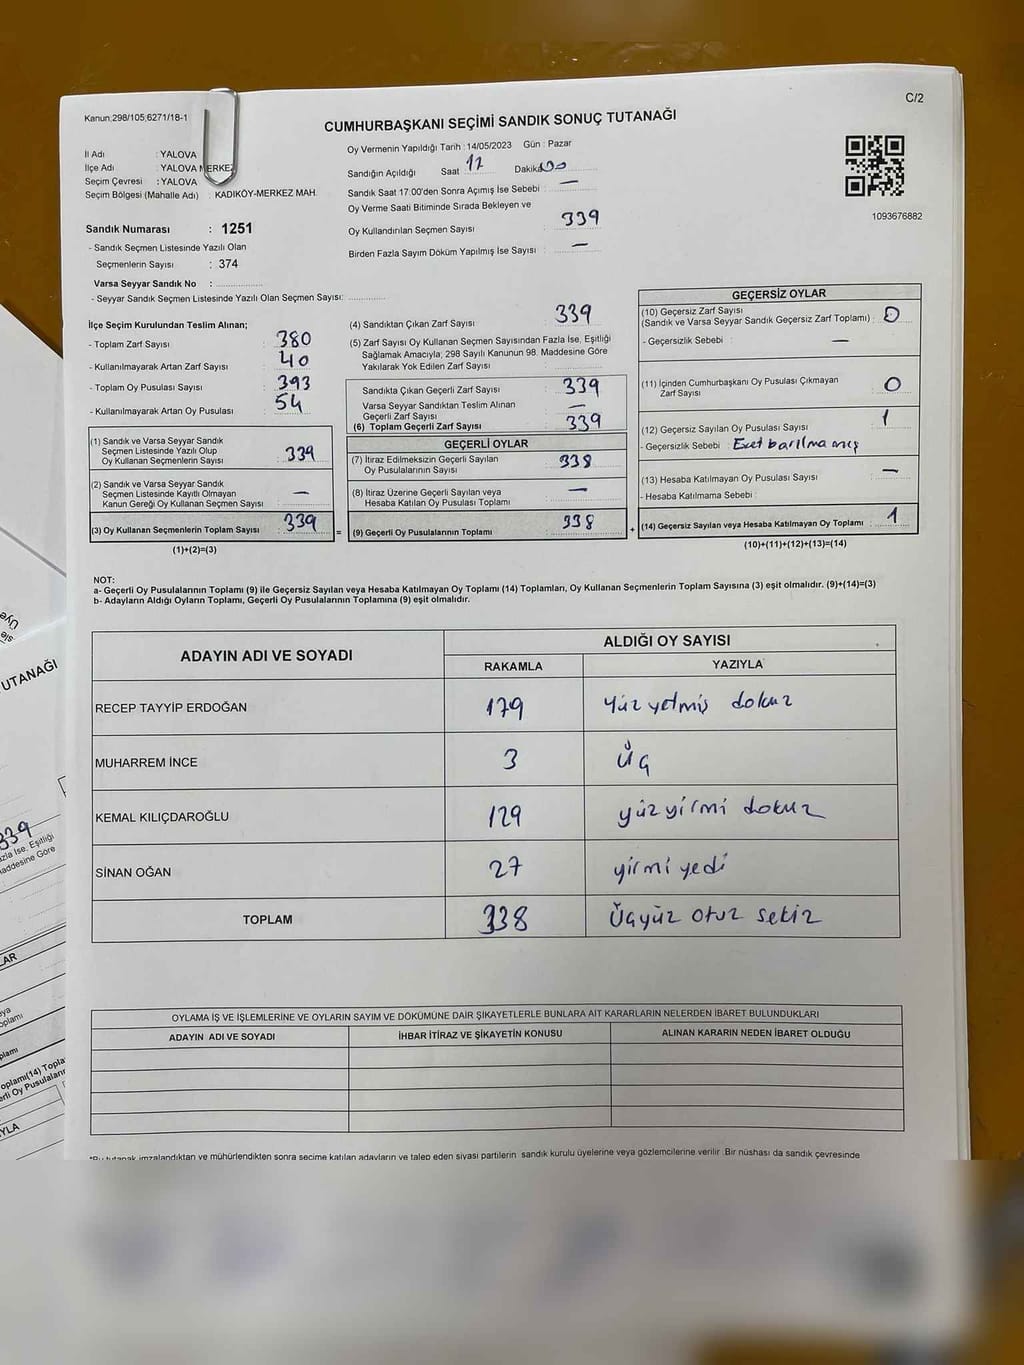 C/2
Kanun;298/105;6271/18-1
CUMHURBAŞKANI SEÇİMİ SANDIK SONUÇ TUTANAĞI
İl Adı : YALOVA
İlçe Adı : YALOVA MERKEZ
Seçim Çevresi : YALOVA
Seçim Bölgesi (Mahalle Adı) : KADIKÖY-MERKEZ MAH.
Oy Vermenin Yapıldığı Tarih : 14/05/2023 Gün : Pazar
Sandığın Açıldığı Saat 17 Dakika 00
Sandık Saat 17:00'den Sonra Açımış İse Sebebi : —
Oy Verme Saati Bitiminde Sırada Bekleyen ve
Oy Kullandırılan Seçmen Sayısı : 339
Birden Fazla Sayım Döküm Yapılmış İse Sayısı : —
1093676882
Sandık Numarası : 1251
- Sandık Seçmen Listesinde Yazılı Olan
Seçmenlerin Sayısı : 374
Varsa Seyyar Sandık No :
- Seyyar Sandık Seçmen Listesinde Yazılı Olan Seçmen Sayısı:
İlçe Seçim Kurulundan Teslim Alınan;
- Toplam Zarf Sayısı : 380
- Kullanılmayarak Artan Zarf Sayısı : 40
- Toplam Oy Pusulası Sayısı : 393
- Kullanılmayarak Artan Oy Pusulası : 54
(1) Sandık ve Varsa Seyyar Sandık
Seçmen Listesinde Yazılı Olup
Oy Kullanan Seçmenlerin Sayısı : 339
(2) Sandık ve Varsa Seyyar Sandık
Seçmen Listesinde Kayıtlı Olmayan
Kanun Gereği Oy Kullanan Seçmen Sayısı : —
(3) Oy Kullanan Seçmenlerin Toplam Sayısı : 339
(1)+(2)=(3)
(4) Sandıktan Çıkan Zarf Sayısı : 339
(5) Zarf Sayısı Oy Kullanan Seçmen Sayısından Fazla İse, Eşitliği
Sağlamak Amacıyla; 298 Sayılı Kanunun 98. Maddesine Göre
Yakılarak Yok Edilen Zarf Sayısı :
Sandıkta Çıkan Geçerli Zarf Sayısı : 339
Varsa Seyyar Sandıktan Teslim Alınan
Geçerli Zarf Sayısı : —
(6) Toplam Geçerli Zarf Sayısı : 339
GEÇERLİ OYLAR
(7) İtiraz Edilmeksizin Geçerli Sayılan
Oy Pusulalarının Sayısı : 338
(8) İtiraz Üzerine Geçerli Sayılan veya
Hesaba Katılan Oy Pusulası Toplamı : —
= (9) Geçerli Oy Pusulalarının Toplamı : 338
GEÇERSİZ OYLAR
(10) Geçersiz Zarf Sayısı
(Sandık ve Varsa Seyyar Sandık Geçersiz Zarf Toplamı) : 0
- Geçersizlik Sebebi : —
(11) İçinden Cumhurbaşkanı Oy Pusulası Çıkmayan
Zarf Sayısı : 0
(12) Geçersiz Sayılan Oy Pusulası Sayısı : 1
- Geçersizlik Sebebi : Evet barılmamış
(13) Hesaba Katılmayan Oy Pusulası Sayısı : —
- Hesaba Katılmama Sebebi :
+ (14) Geçersiz Sayılan veya Hesaba Katılmayan Oy Toplamı : 1
(10)+(11)+(12)+(13)=(14)
NOT:
a- Geçerli Oy Pusulalarının Toplamı (9) ile Geçersiz Sayılan veya Hesaba Katılmayan Oy Toplamı (14) Toplamları, Oy Kullanan Seçmenlerin Toplam Sayısına (3) eşit olmalıdır. (9)+(14)=(3)
b- Adayların Aldığı Oyların Toplamı, Geçerli Oy Pusulalarının Toplamına (9) eşit olmalıdır.
ADAYIN ADI VE SOYADI ALDIĞI OY SAYISI
RAKAMLA YAZIYLA
RECEP TAYYİP ERDOĞAN 179 Yüz yetmiş dokuz
MUHARREM İNCE 3 Üç
KEMAL KILIÇDAROĞLU 129 yüz yirmi dokuz
SİNAN OĞAN 27 yirmi yedi
TOPLAM 338 Üçyüz otuz sekiz
OYLAMA İŞ VE İŞLEMLERİNE VE OYLARIN SAYIM VE DÖKÜMÜNE DAİR ŞİKAYETLERLE BUNLARA AİT KARARLARIN NELERDEN İBARET BULUNDUKLARI
ADAYIN ADI VE SOYADI İHBAR İTİRAZ VE ŞİKAYETİN KONUSU ALINAN KARARIN NEDEN İBARET OLDUĞU
*Bu tutanak imzalandıktan ve mühürlendikten sonra seçime katılan adayların ve talep eden siyasi partilerin sandık kurulu üyelerine veya gözlemcilerine verilir. Bir nüshası da sandık çevresinde
UTANAĞI
339
zla İse, Eşitliği
addesine Göre
LAR
oplamı
plamı
oplamı(14) Topla
erli Oy Pusulaları
YLA